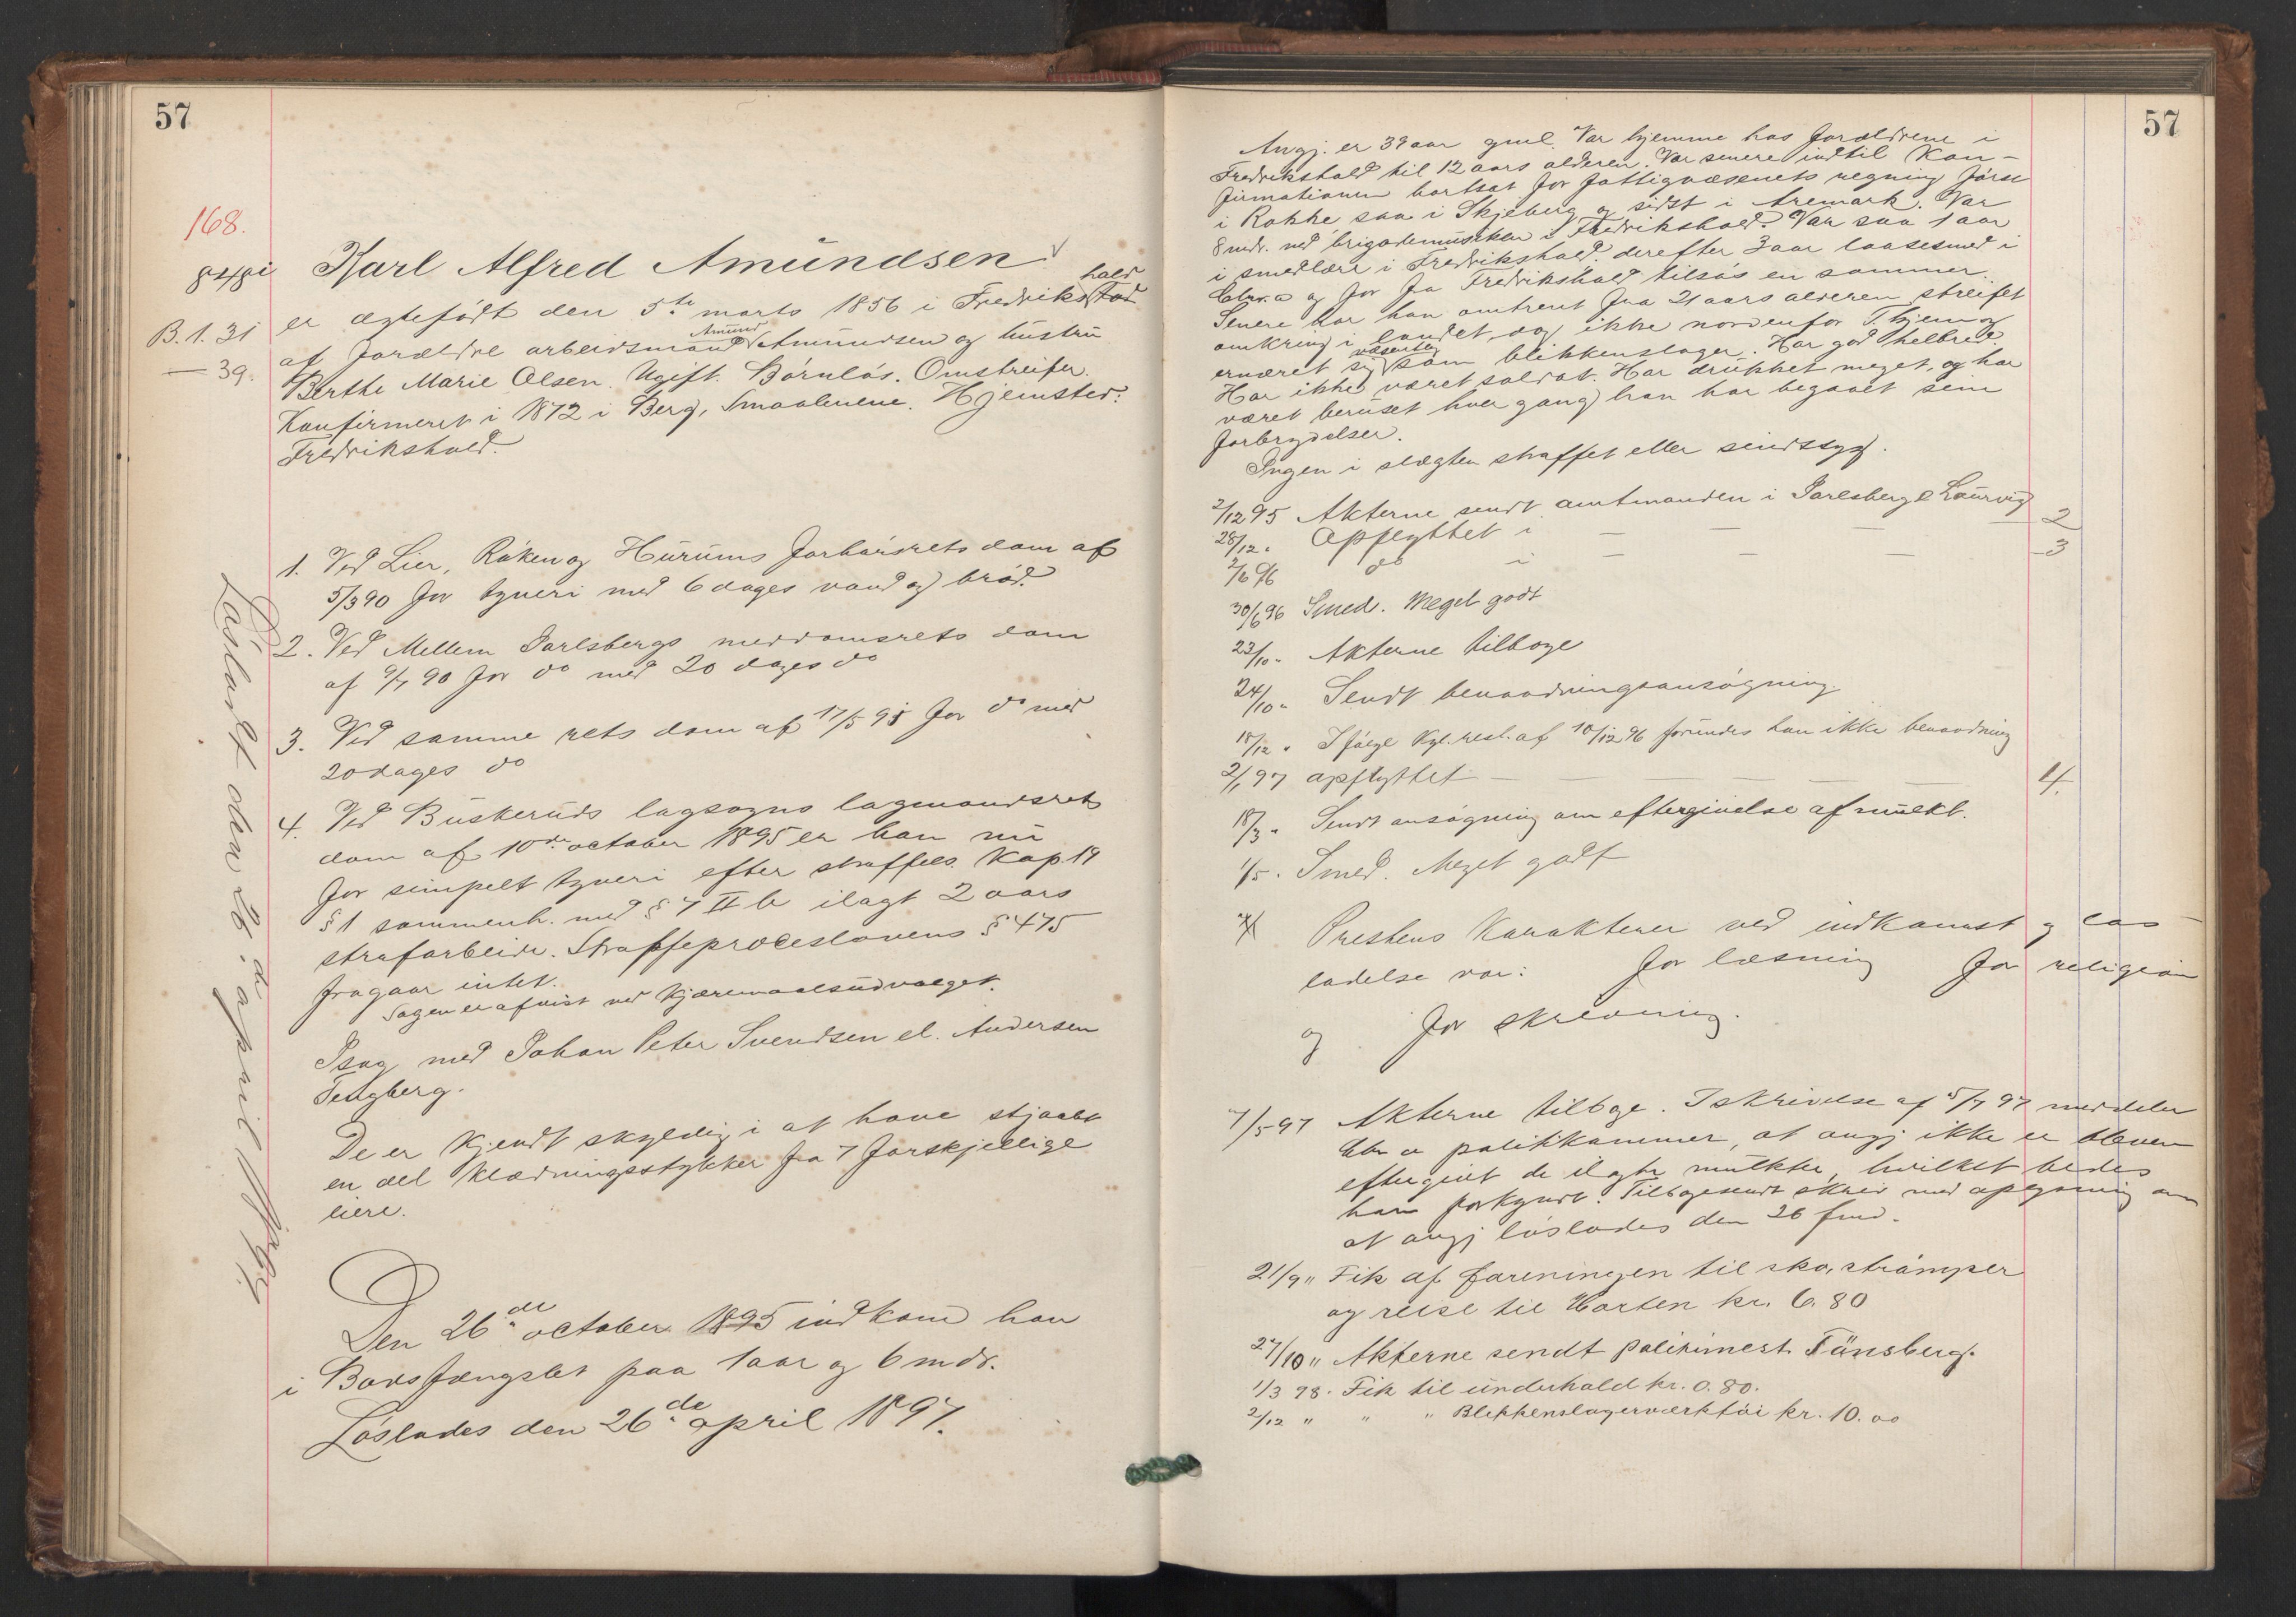 57
168.
848i
B. 1. 31
— 39.
Karl Alfred Amundsen
er ægtefødt den 5te marts 1856 i Fredrikshald
af forældre arbeidsmand Amund Amundsen og hustru
Berthe Marie Olsen. Ugift. Børnløs. Omstreifer.
Konfirmeret i 1872 i Berg, Smaalenene. Hjemsted:
Fredrikshald.
1. Ved Lier, Røken og Hurums forhørsrets dom af
5/3 90 for tyveri med 6 dages vand og brød.
2. Ved Mellem Jarlsbergs meddomsrets dom
af 9/7 90 for do med 20 dages do
3. Ved samme rets dom af 17/5 95 for do med
20 dages do
4. Ved Buskeruds lagsogns lagmandsrets
dom af 10de october 1895 er han nu
for simpelt tyveri efter straffels. Kap 19
§ 1 sammenh. med § 7 II b ilagt 2 aars
strafarbeide. Straffeproceslovens § 475
fragaar intet.
Sagen er afvist ved kjæremaalsudvalget.
I sag med Johan Peter Svendsen el. Andersen
Tengberg.
De er kjendt skyldig i at have stjaalet
en del klædningsstykker fra 7 forskjellige
eiere.
Den 26de october 1895 indkom han
i Bodsfængslet paa 1 aar og 6 mdr.
Løslades den 26de april 1897.
Løsladt den 26de april 1897.
57
Angj. er 39 aar gml. Var hjemme hos forældrene i
Fredrikshald til 12 aars alderen. Var senere indtil kon-
firmationen bortsat for fattigvæsenets regning først
i Rokke saa i Skjeberg og sidst i Aremark. Var
8 mdr. ved brigademusikken i Fredrikshald. Var saa 1 aar
i smedlære i Fredrikshald, derefter 3 aar laasesmed i
Chr.a og for fra Fredrikshald tilsøs en sommer.
Senere har han omtrent fra 21 aars alderen streifet
omkring i landet, dog ikke nordenfor T.hjem og
ernæret sig væsentlig som blikkenslager. Har god helbred.
Har ikke været soldat. Har drukket meget, og har
været beruset hver gang han har begaaet sine
forbrydelser.
Ingen i slægten straffet eller sindssyg.
2/12 95 Akterne sendt amtmanden i Jarlsberg & Laurvig
28/12 " Opflyttet i — — — 2
2/6 96 do i — — — 3
30/6 96 Smed. Meget godt
23/10 " Akterne tilbage
24/10 " Sendt benaadningsansøgning.
18/12 " Ifølge kgl. resl. af 10/12 96 forundes han ikke benaadning
2/1 97 opflyttet — — — — — — 4.
18/3 " Sendt ansøgning om eftergivelse af mulkt.
1/5 " Smed. Meget godt
Prestens karakterer ved indkomst og løs-
ladelse var: for læsning for religion
og for skrivning.
7/5 97 Akterne tilbage. I skrivelse af meddeler
Chr a politikammer, at angj ikke er bleven
eftergivet de ilagte mulkter, hvilket bedes
ham forkyndt. Tilbagesendt skriv med oplysning om
at angj løslades den 26 fmd.
21/9 " Fik af foreningen til sko, strømper
og reise til Horten kr. 6.80
27/10 " Akterne sendt politimest. Tønsberg.
1/3 98. Fik til underhold kr. 0.80.
2/12 " " " Blikkenslagerværktøi kr. 10.00